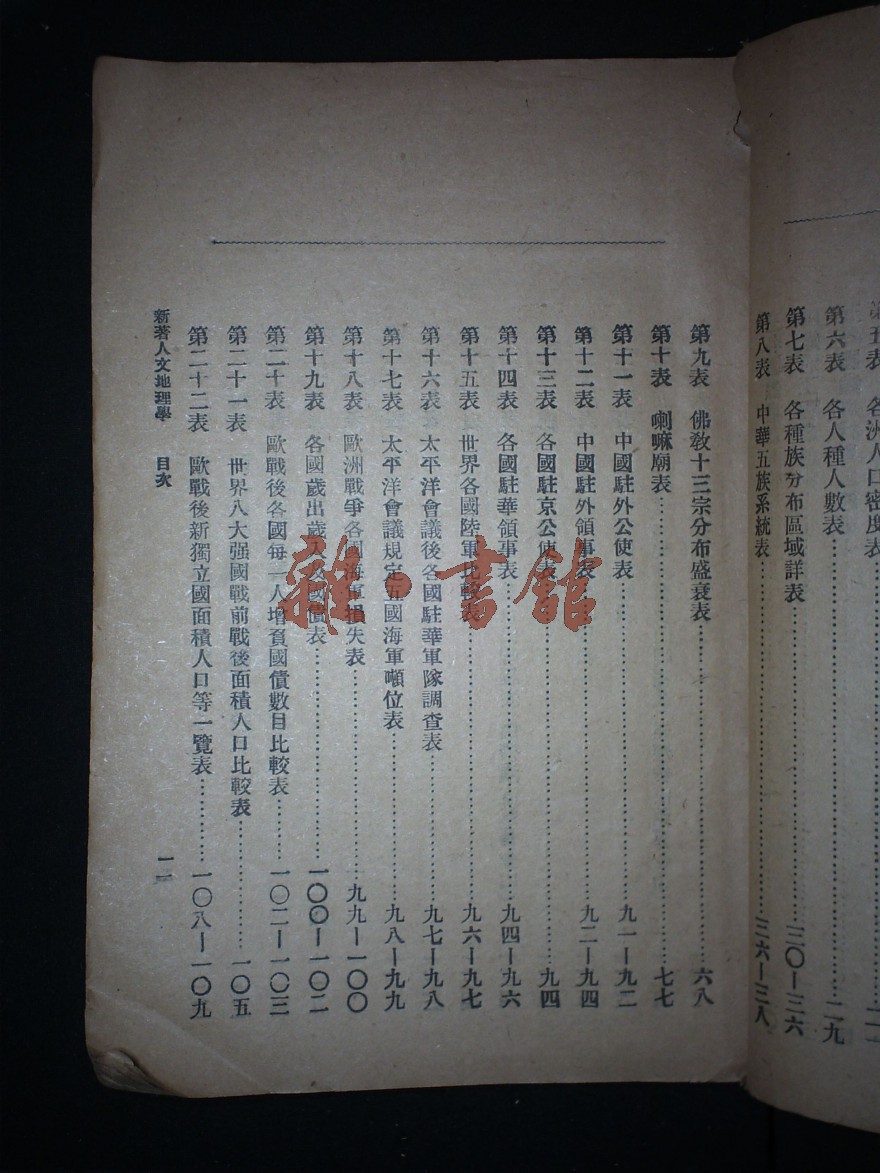 各洲人口密度表
第六表 各人種人數表……二九
第七表 各種族分布區域詳表……三〇—三六
第八表 中華五族系統表……三六—三八
第九表 佛教十三宗分布盛衰表……六八
第十表 喇嘛廟表……七七
第十一表 中國駐外公使表……九一—九二
第十二表 中國駐外領事表……九二—九四
第十三表 各國駐京公使表……九四
第十四表 各國駐華領事表……九四—九六
第十五表 世界各國陸軍比較表……九六—九七
第十六表 太平洋會議後各國駐華軍隊調查表……九七—九八
第十七表 太平洋會議規定五國海軍噸位表……九八—九九
第十八表 歐洲戰爭各國海軍損失表……九九—一〇〇
第十九表 各國歲出歲入及國債表……一〇〇—一〇二
第二十表 歐戰後各國每一人增負國債數目比較表……一〇二—一〇三
第二十一表 世界八大强國戰前戰後面積人口比較表……一〇五
第二十二表 歐戰後新獨立國面積人口等一覽表……一〇八—一〇九
新著人文地理學 目次 一一
雜·書館